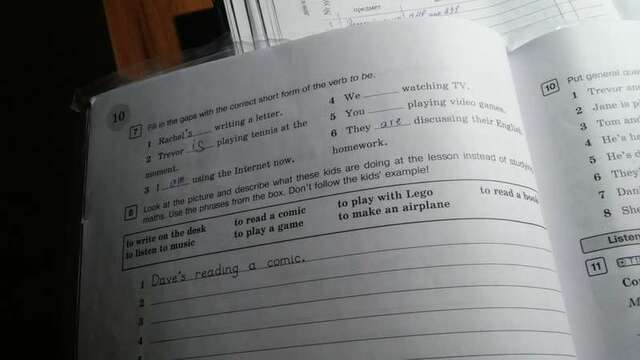 предмет
10
7 Fill in the gaps with the correct short form of the verb to be.
1 Rachel's writing a letter.
2 Trevor is playing tennis at the
moment.
3 I am using the Internet now.
4 We ______ watching TV.
5 You ______ playing video games.
6 They are discussing their English
homework.
8 Look at the picture and describe what these kids are doing at the lesson instead of studying
maths. Use the phrases from the box. Don't follow the kids' example!
to write on the desk to read a comic to play with Lego to read a book
to listen to music to play a game to make an airplane
1 Dave's reading a comic.
2
3
4
5
10 Put general que
1 Trevor an
2 Jane is p
3 Tom and
4 He's he
5 He's d
6 They'
7 Dav
8 She
Listen
11
Co
M